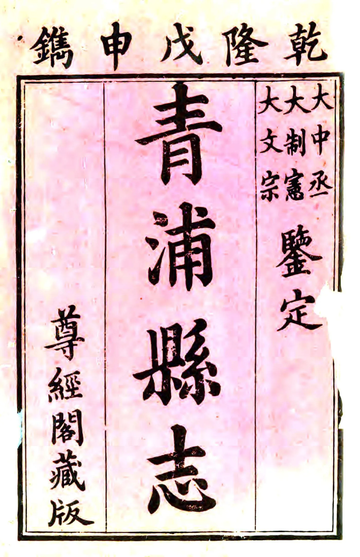 乾隆戊申鐫
大中丞
大制憲
大文宗
鑒定
青浦縣志
尊經閣藏版